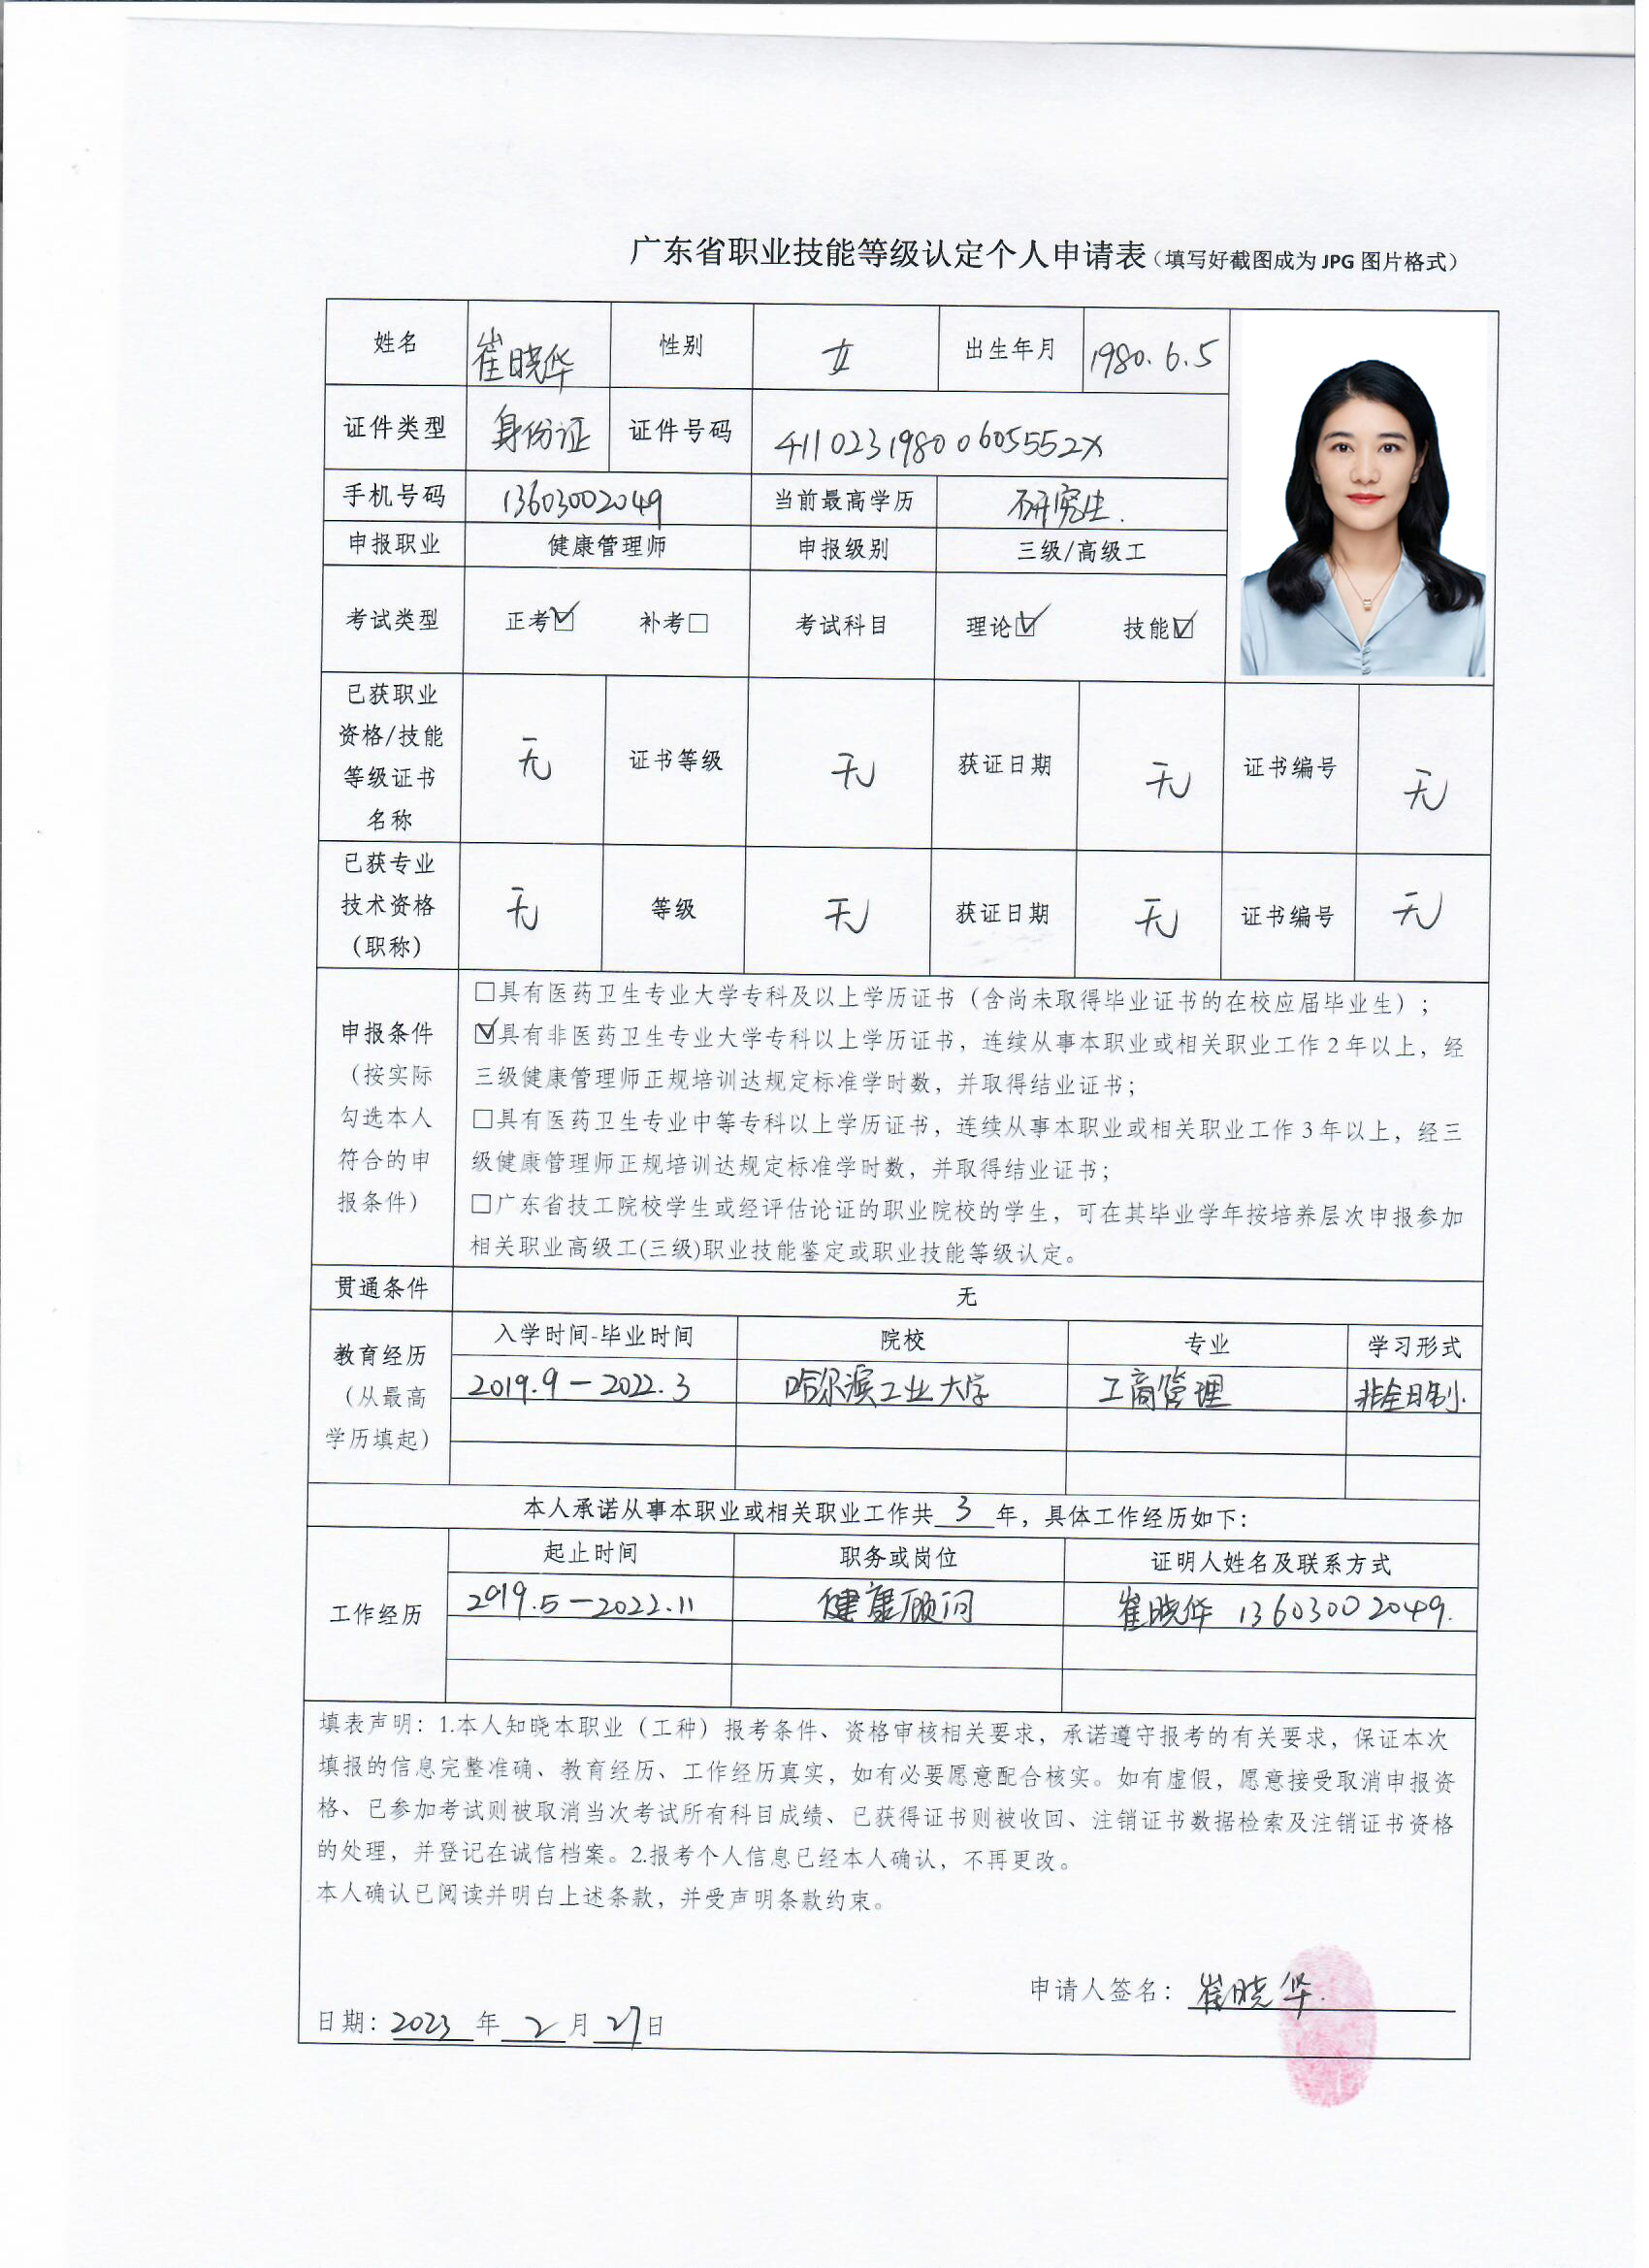 广东省职业技能等级认定个人申请表（填写好截图成为 JPG 图片格式）
姓名 崔晓华 性别 女 出生年月 1980.6.5
证件类型 身份证 证件号码 41102319800605552X
手机号码 13603002049 当前最高学历 研究生.
申报职业 健康管理师 申报级别 三级/高级工
考试类型 正考☑ 补考□ 考试科目 理论☑ 技能☑
已获职业
资格/技能
等级证书
名称
无 证书等级 无 获证日期 无 证书编号 无
已获专业
技术资格
（职称）
无 等级 无 获证日期 无 证书编号 无
申报条件
（按实际
勾选本人
符合的申
报条件）
□具有医药卫生专业大学专科及以上学历证书（含尚未取得毕业证书的在校应届毕业生）；
☑具有非医药卫生专业大学专科以上学历证书，连续从事本职业或相关职业工作 2 年以上，经
三级健康管理师正规培训达规定标准学时数，并取得结业证书；
□具有医药卫生专业中等专科以上学历证书，连续从事本职业或相关职业工作 3 年以上，经三
级健康管理师正规培训达规定标准学时数，并取得结业证书；
□广东省技工院校学生或经评估论证的职业院校的学生，可在其毕业学年按培养层次申报参加
相关职业高级工(三级)职业技能鉴定或职业技能等级认定。
贯通条件 无
教育经历
（从最高
学历填起）
入学时间-毕业时间 院校 专业 学习形式
2019.9－2022.3 哈尔滨工业大学 工商管理 非全日制.
本人承诺从事本职业或相关职业工作共 3 年，具体工作经历如下：
工作经历
起止时间 职务或岗位 证明人姓名及联系方式
2019.5－2022.11 健康顾问 崔晓华 13603002049.
填表声明：1.本人知晓本职业（工种）报考条件、资格审核相关要求，承诺遵守报考的有关要求，保证本次
填报的信息完整准确、教育经历、工作经历真实，如有必要愿意配合核实。如有虚假，愿意接受取消申报资
格、已参加考试则被取消当次考试所有科目成绩、已获得证书则被收回、注销证书数据检索及注销证书资格
的处理，并登记在诚信档案。2.报考个人信息已经本人确认，不再更改。
本人确认已阅读并明白上述条款，并受声明条款约束。
申请人签名：崔晓华.
日期：2023 年 2 月 27 日